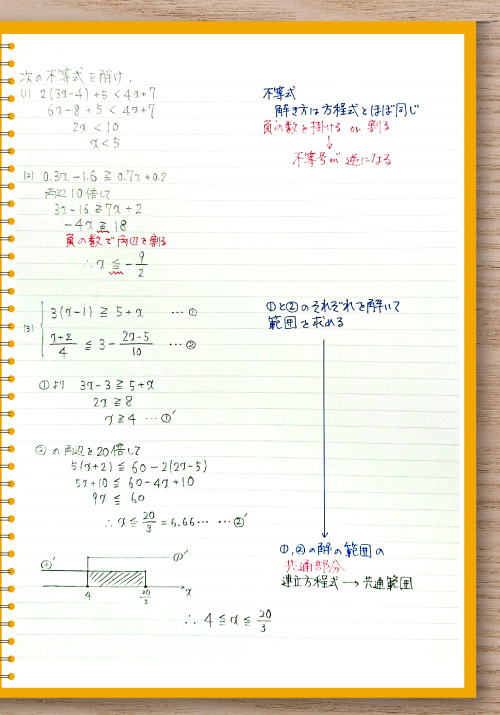 次の不等式を解け.
(1) 2(3x-4)+5 < 4x+7
6x-8+5 < 4x+7
2x < 10
x < 5
不等式
解き方は方程式とほぼ同じ
負の数を掛ける or 割る
↓
不等号が逆になる
(2) 0.3x-1.6 ≧ 0.7x+0.2
両辺10倍して
3x-16 ≧ 7x+2
-4x ≧ 18
負の数で両辺を割る
∴ x ≦ -9/2
(3) { 3(x-1) ≧ 5+x …①
(x+2)/4 ≦ 3-(2x-5)/10 …②
①より 3x-3 ≧ 5+x
2x ≧ 8
x ≧ 4 …①'
②の両辺を20倍して
5(x+2) ≦ 60-2(2x-5)
5x+10 ≦ 60-4x+10
9x ≦ 60
∴ x ≦ 20/3 = 6.66… …②'
①と②のそれぞれを解いて
範囲を求める
①,②の解の範囲の
共通部分
連立方程式 → 共通範囲
②' ①'
4 20/3 x
∴ 4 ≦ x ≦ 20/3